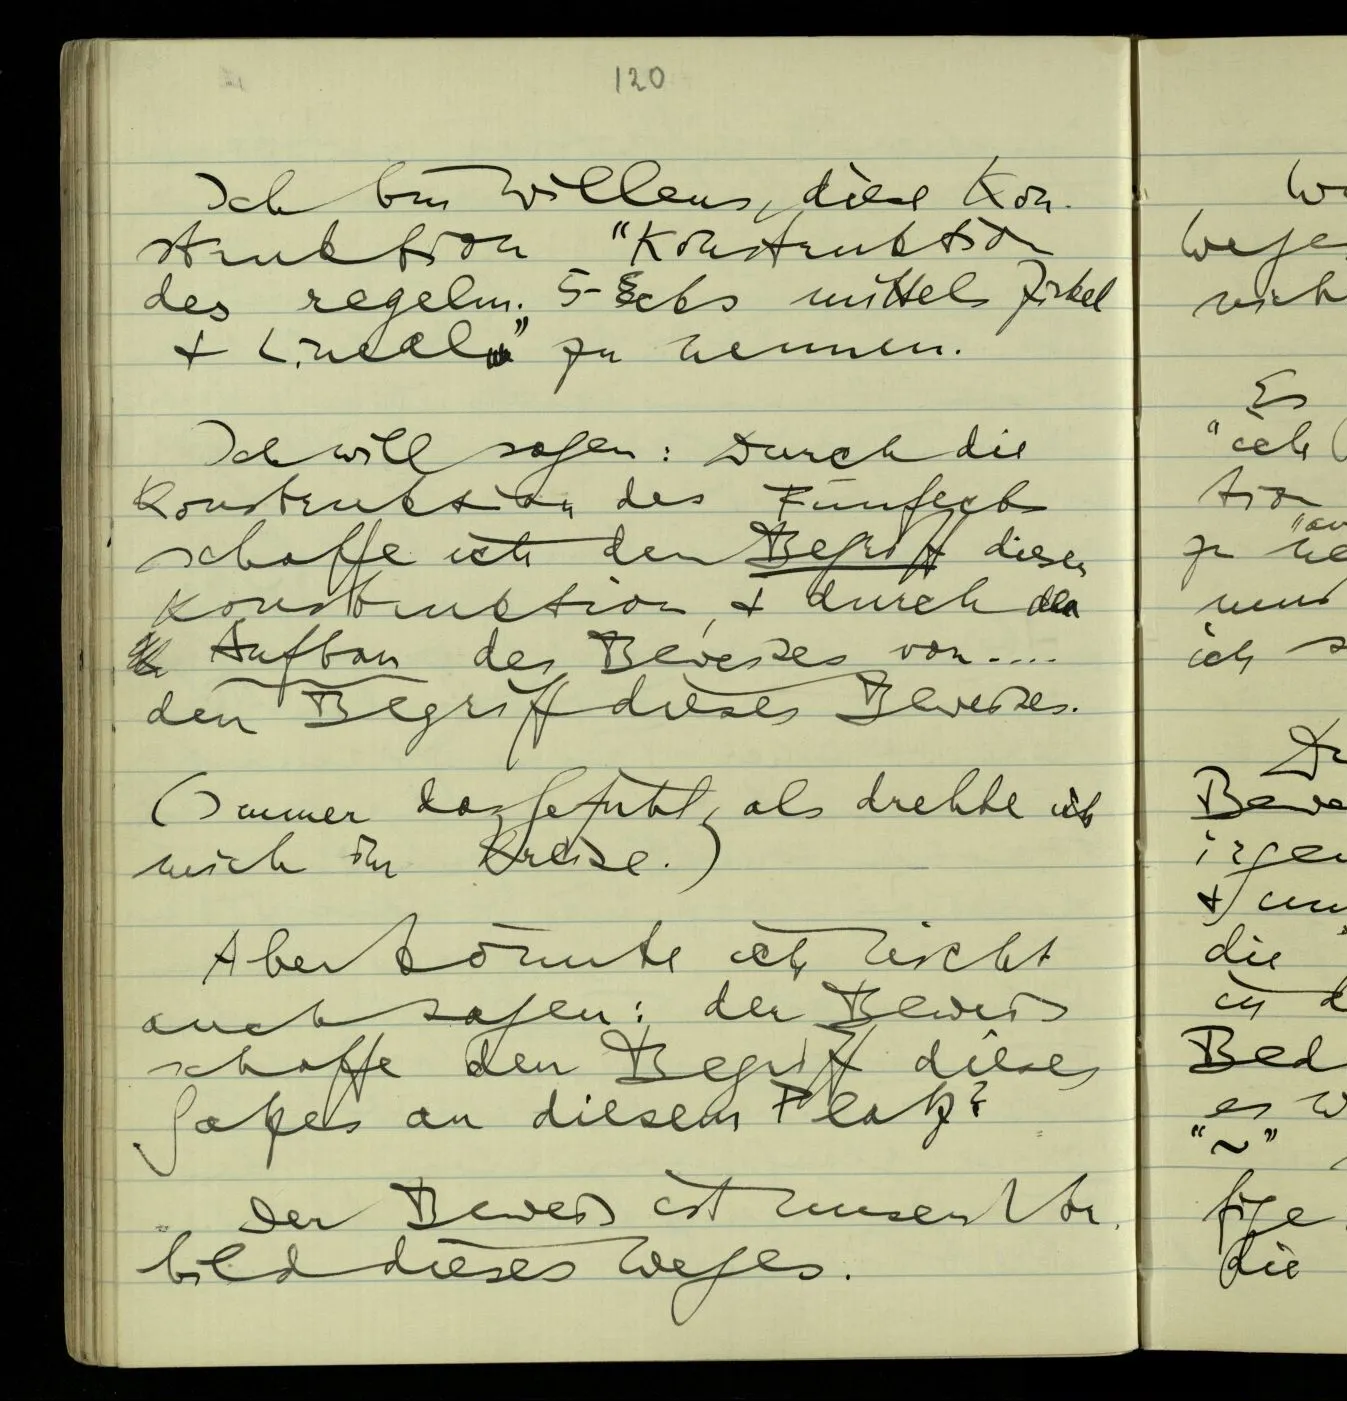 120
Ich bin willens, diese Kon-
struktion "Konstruktion
des regelm. 5-Ecks mittels Zirkel
+ Lineal" zu nennen.
Ich will sagen: Durch die
Konstruktion des Fünfecks
schaffe ich den Begriff dieser
Konstruktion, + durch den
Aufbau des Beweises von....
den Begriff dieses Beweises.
(Immer das Gefühl, als drehte ich
mich im Kreise.)
Aber könnte ich nicht
auch sagen: der Beweis
schaffe den Begriff dieses
Satzes an diesem Platz?
Der Beweis ist unser Vor-
bild dieses Weges.
Es
"ich
tion
zu
ich
Bewe
+ um
die
Bed
es
"~"
die